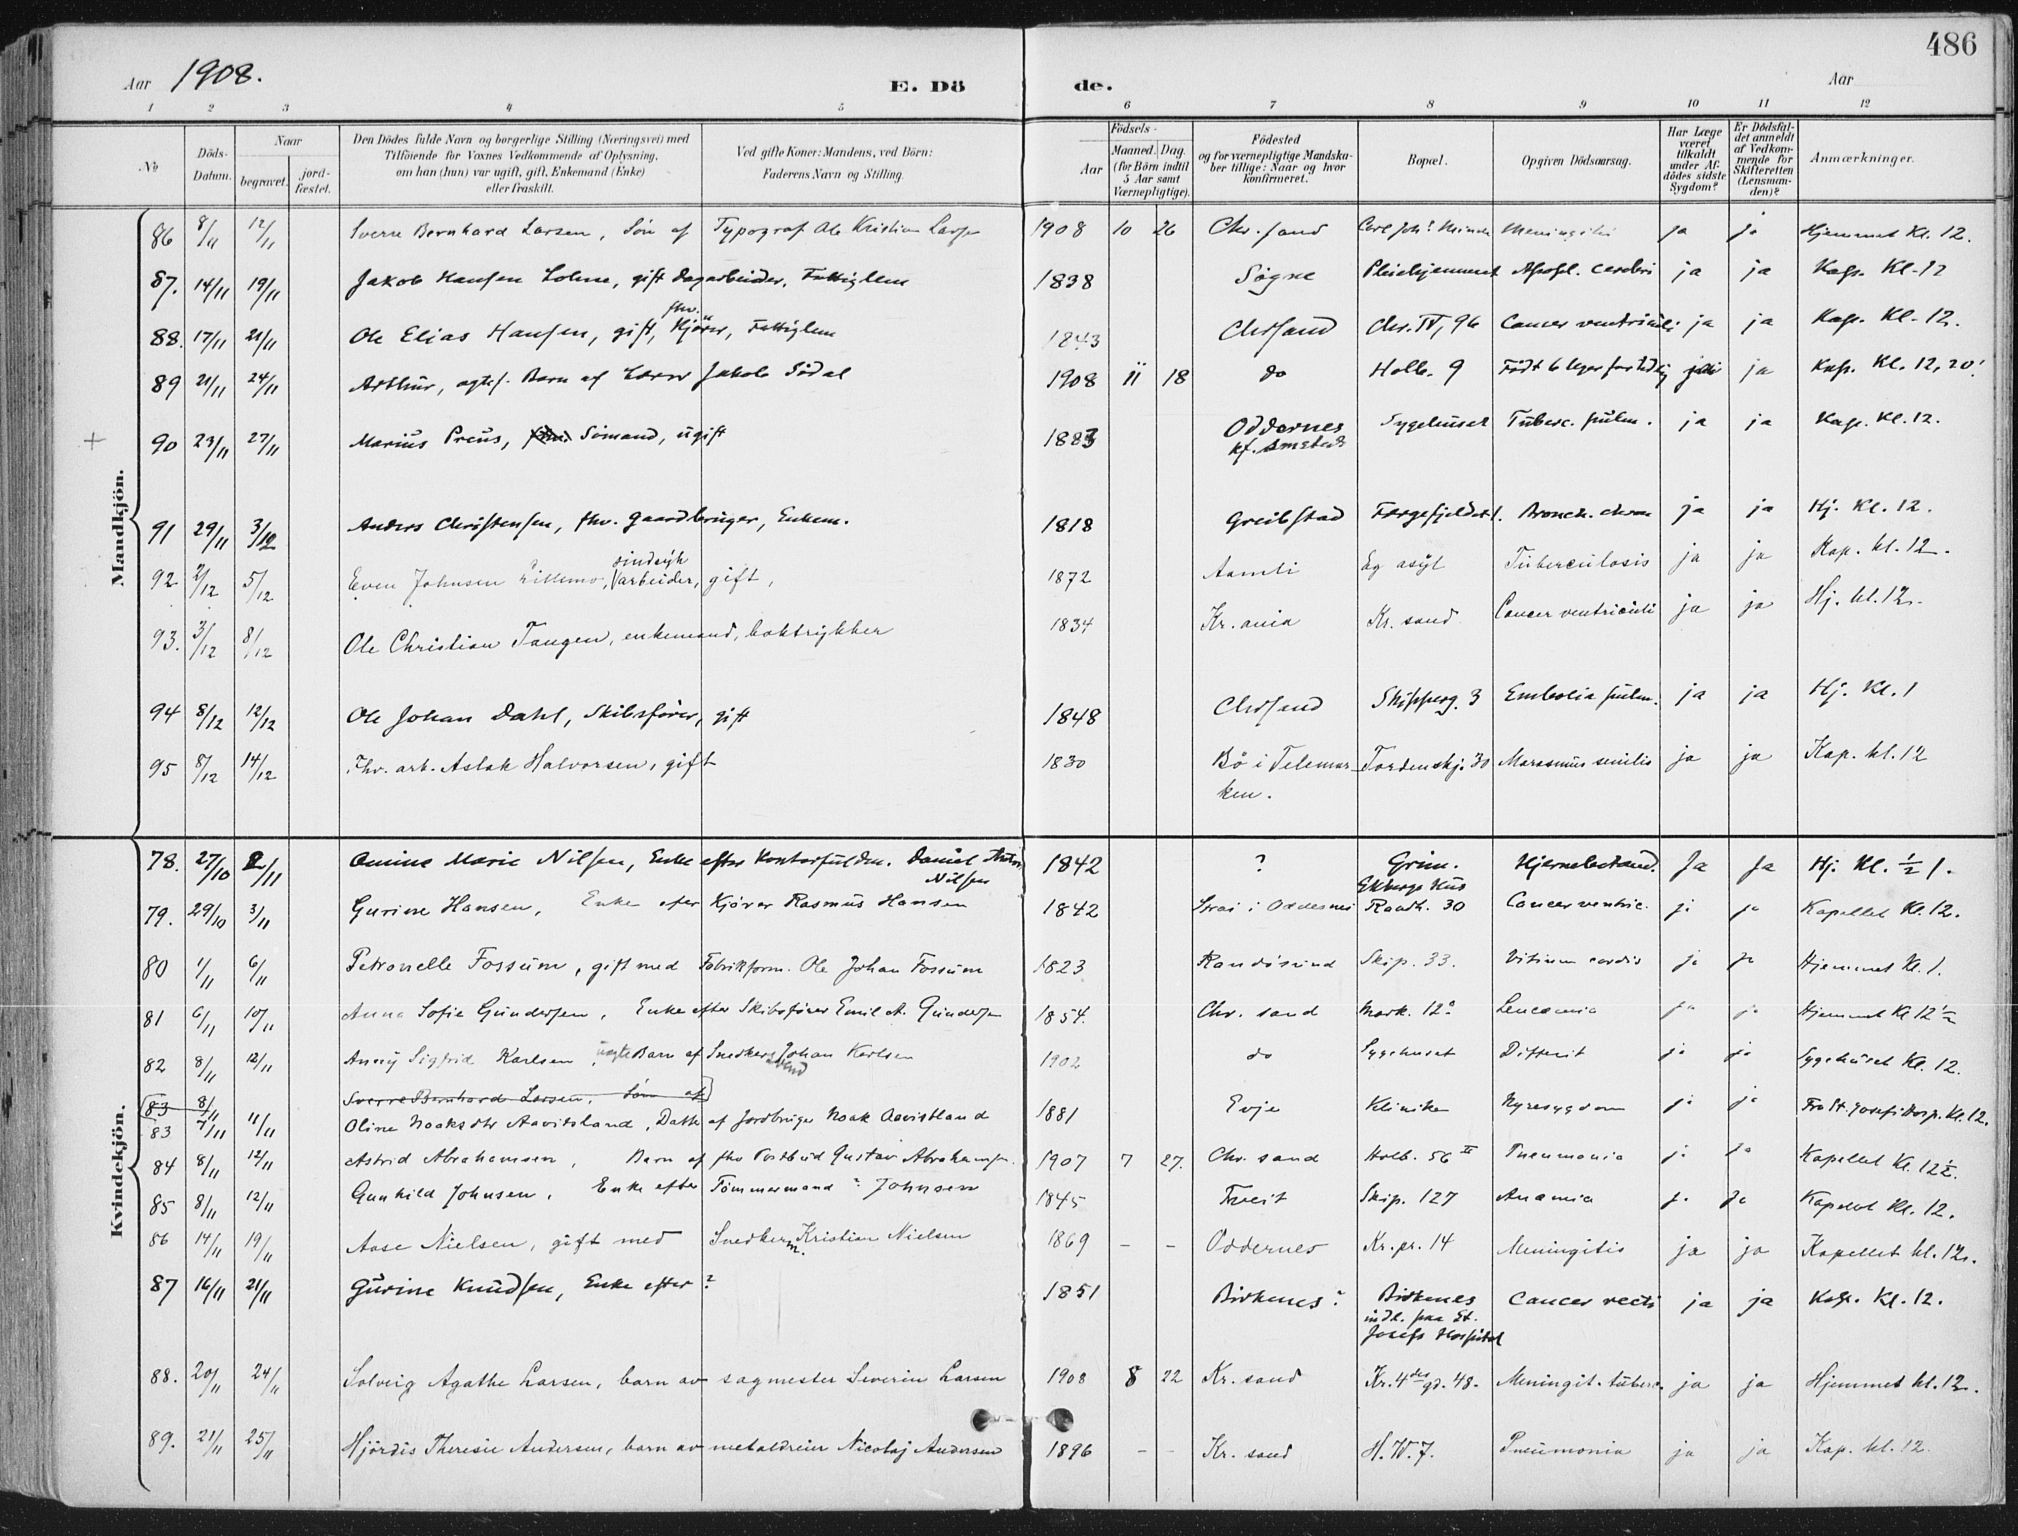 486
Aar 1908. E. Dö de. Aar
1 2 3 4 5 6 7 8 9 10 11 12
No
Döds-Datum.
Naar
begravet.
jord-fæstet.
Den Dödes fulde Navn og borgerlige Stilling (Næringsvei) med
Tilföiende for Voxnes Vedkommende af Oplysning,
om han (hun) var ugift, gift, Enkemand (Enke)
eller fraskilt.
Ved gifte Koner: Mandens, ved Börn:
Faderens Navn og Stilling.
Födsels-
Aar
Maaned. Dag.
(for Börn indtil
5 Aar samt
Værnepligtige).
Födested
og for værnepligtige Mandska-
ber tillige: Naar og hvor
konfirmeret.
Bopæl.
Opgiven Dödsaarsag.
Har Læge
været
tilkaldt
under Af-
dödes sidste
Sygdom?
Er Dödsfal-
det anmeldt
af Vedkom-
mende for
Skifteretten
(Lensman-
den)?
Anmærkninger.
Mandkjön.
86 8/11 12/11 Sverre Bernhard Larsen, Sön af Typograf Ole Kristian Larsen 1908 10 26 Chr.sand Meningitis ja ja Hjemmet Kl. 12.
87. 14/11 19/11 Jakob Hansen Lohne, gift dagarbeider, Fattiglem 1838 Søgne Pleiehjemmet Apopl. cerebri ja ja Kap. Kl. 12
88. 17/11 21/11 Ole Elias Hansen, gift, fhv. Kjører, Fattiglem 1843 Chrsand Chr. IV, 96 Cancer ventriculi ja ja Kap. Kl. 12.
89 21/11 24/11 Arthur, ægtef. Barn af Jakob Södal 1908 11 18 do Holb. 9 Født 6 uger for tidlig ja Kap. Kl. 12,20!
+ 90 23/11 27/11 Marius Preus, Sömand, ugift 1883 Oddernes Sygehuset Tuberc. pulm. ja ja Kap. Kl. 12.
91 29/11 3/12 Anders Christensen, fhv. gaardbruger, Enkem. 1818 Greibstad Bronch. chron ja ja Hj. Kl. 12.
92 2/12 5/12 Even Johnsen sindsyk arbeider, gift, 1872 Aamli Eg asyl Tuberculosis ja ja Kap. kl. 12.
93. 3/12 8/12 Ole Christian Tangen, enkemand, boktrykker 1834 Kr.ania Kr. sand Cancer ventriculi ja ja Hj. kl. 12.
94 8/12 12/12 Ole Johan Dahl, Skibsfører, gift 1848 Chrsand Skipperg. 3 Embolia pulm. ja ja Hj. Kl. 1
95 8/12 14/12 Fhv. arb. Aslak Halvorsen, gift 1830 Bö i Telemar-
ken. Tordenskj. 30 Marasmus senilis ja ja Kap. kl. 12
Kvindekjön.
78. 27/10 2/11 Amine Marie Nilsen, Enke efter Kontorfuldm. Daniel Nilsen 1842 ? Grim. Ja Ja Hj. Kl. ½ 1.
79. 29/10 3/11 Gurine Hansen, Enke efter Kjörer Rasmus Hansen 1842 Strai i Oddernes Ekbergs Hus Raadh. 30 Cancer ventric. ja ja Kapellet Kl. 12.
80 1/11 6/11 Petronelle Fossum, gift med Fabrikform. Ole Johan Fossum 1823 Randösund Skip. 33. Vitium cordis ja ja Hjemmet Kl. 1.
81 6/11 10/11 Anna Sofie Gundersen, Enke efter Skibsfører Emil A. Gundersen 1854. Chr. sand Mark. 12 Leucæmia ja ja Hjemmet Kl 12½
82 8/11 12/11 Anny Sigfrid Karlsen, Barn af Snedkersvend Johan Karlsen 1902 do Sygehuset Difterit ja ja Sygehuset Kl. 12.
83 8/11 Sverre Bernhard Larsen, Sön af
83 7/11 11/11 Oline Noaksdtr Aavitsland, Datter af Jordbruger Noak Aavitsland 1881 Evje Kliniken Nyresygdom ja ja Fra St. Josefs Hosp. Kl. 12.
84 8/11 12/11 Astrid Abrahamsen, Barn af fhv Postbud Gustav Abrahamsen. 1907 7 27. Chr. sand Holb. 56 II Pneumonia ja ja Kapellet Kl. 12½.
85 8/11 12/11 Gunhild Johnsen, Enke efter Tömmermand ? Johnsen 1845 Tveit Skip. 127 Anæmia ja ja Kapellet Kl. 12.
86 14/11 19/11 Aase Nielsen, gift med Snedkerm. Kristian Nielsen 1869 - - Oddernes Kr. pr. 14 Meningitis ja ja Kapellet kl. 12.
87 16/11 21/11 Gurine Knudsen, Enke efter ? 1851 Birkenes? Birkenes
indl. paa St.
Josefs Hospital Cancer recti ja ja Kap. Kl. 12.
88. 20/11 24/11 Solveig Agathe Larsen, barn av sagmester Severin Larsen 1908 8 22 Kr. sand Kr. 4des gd. 48. Meningit. tuberc. ja ja Hjemmet kl. 12.
89. 21/11 25/11 Hjördis Theresie Andersen, barn av metaldreier Nicolaj Andersen 1896 - - Kr. sand H. W. 7. Pneumonia ja ja Kap. kl. 12.